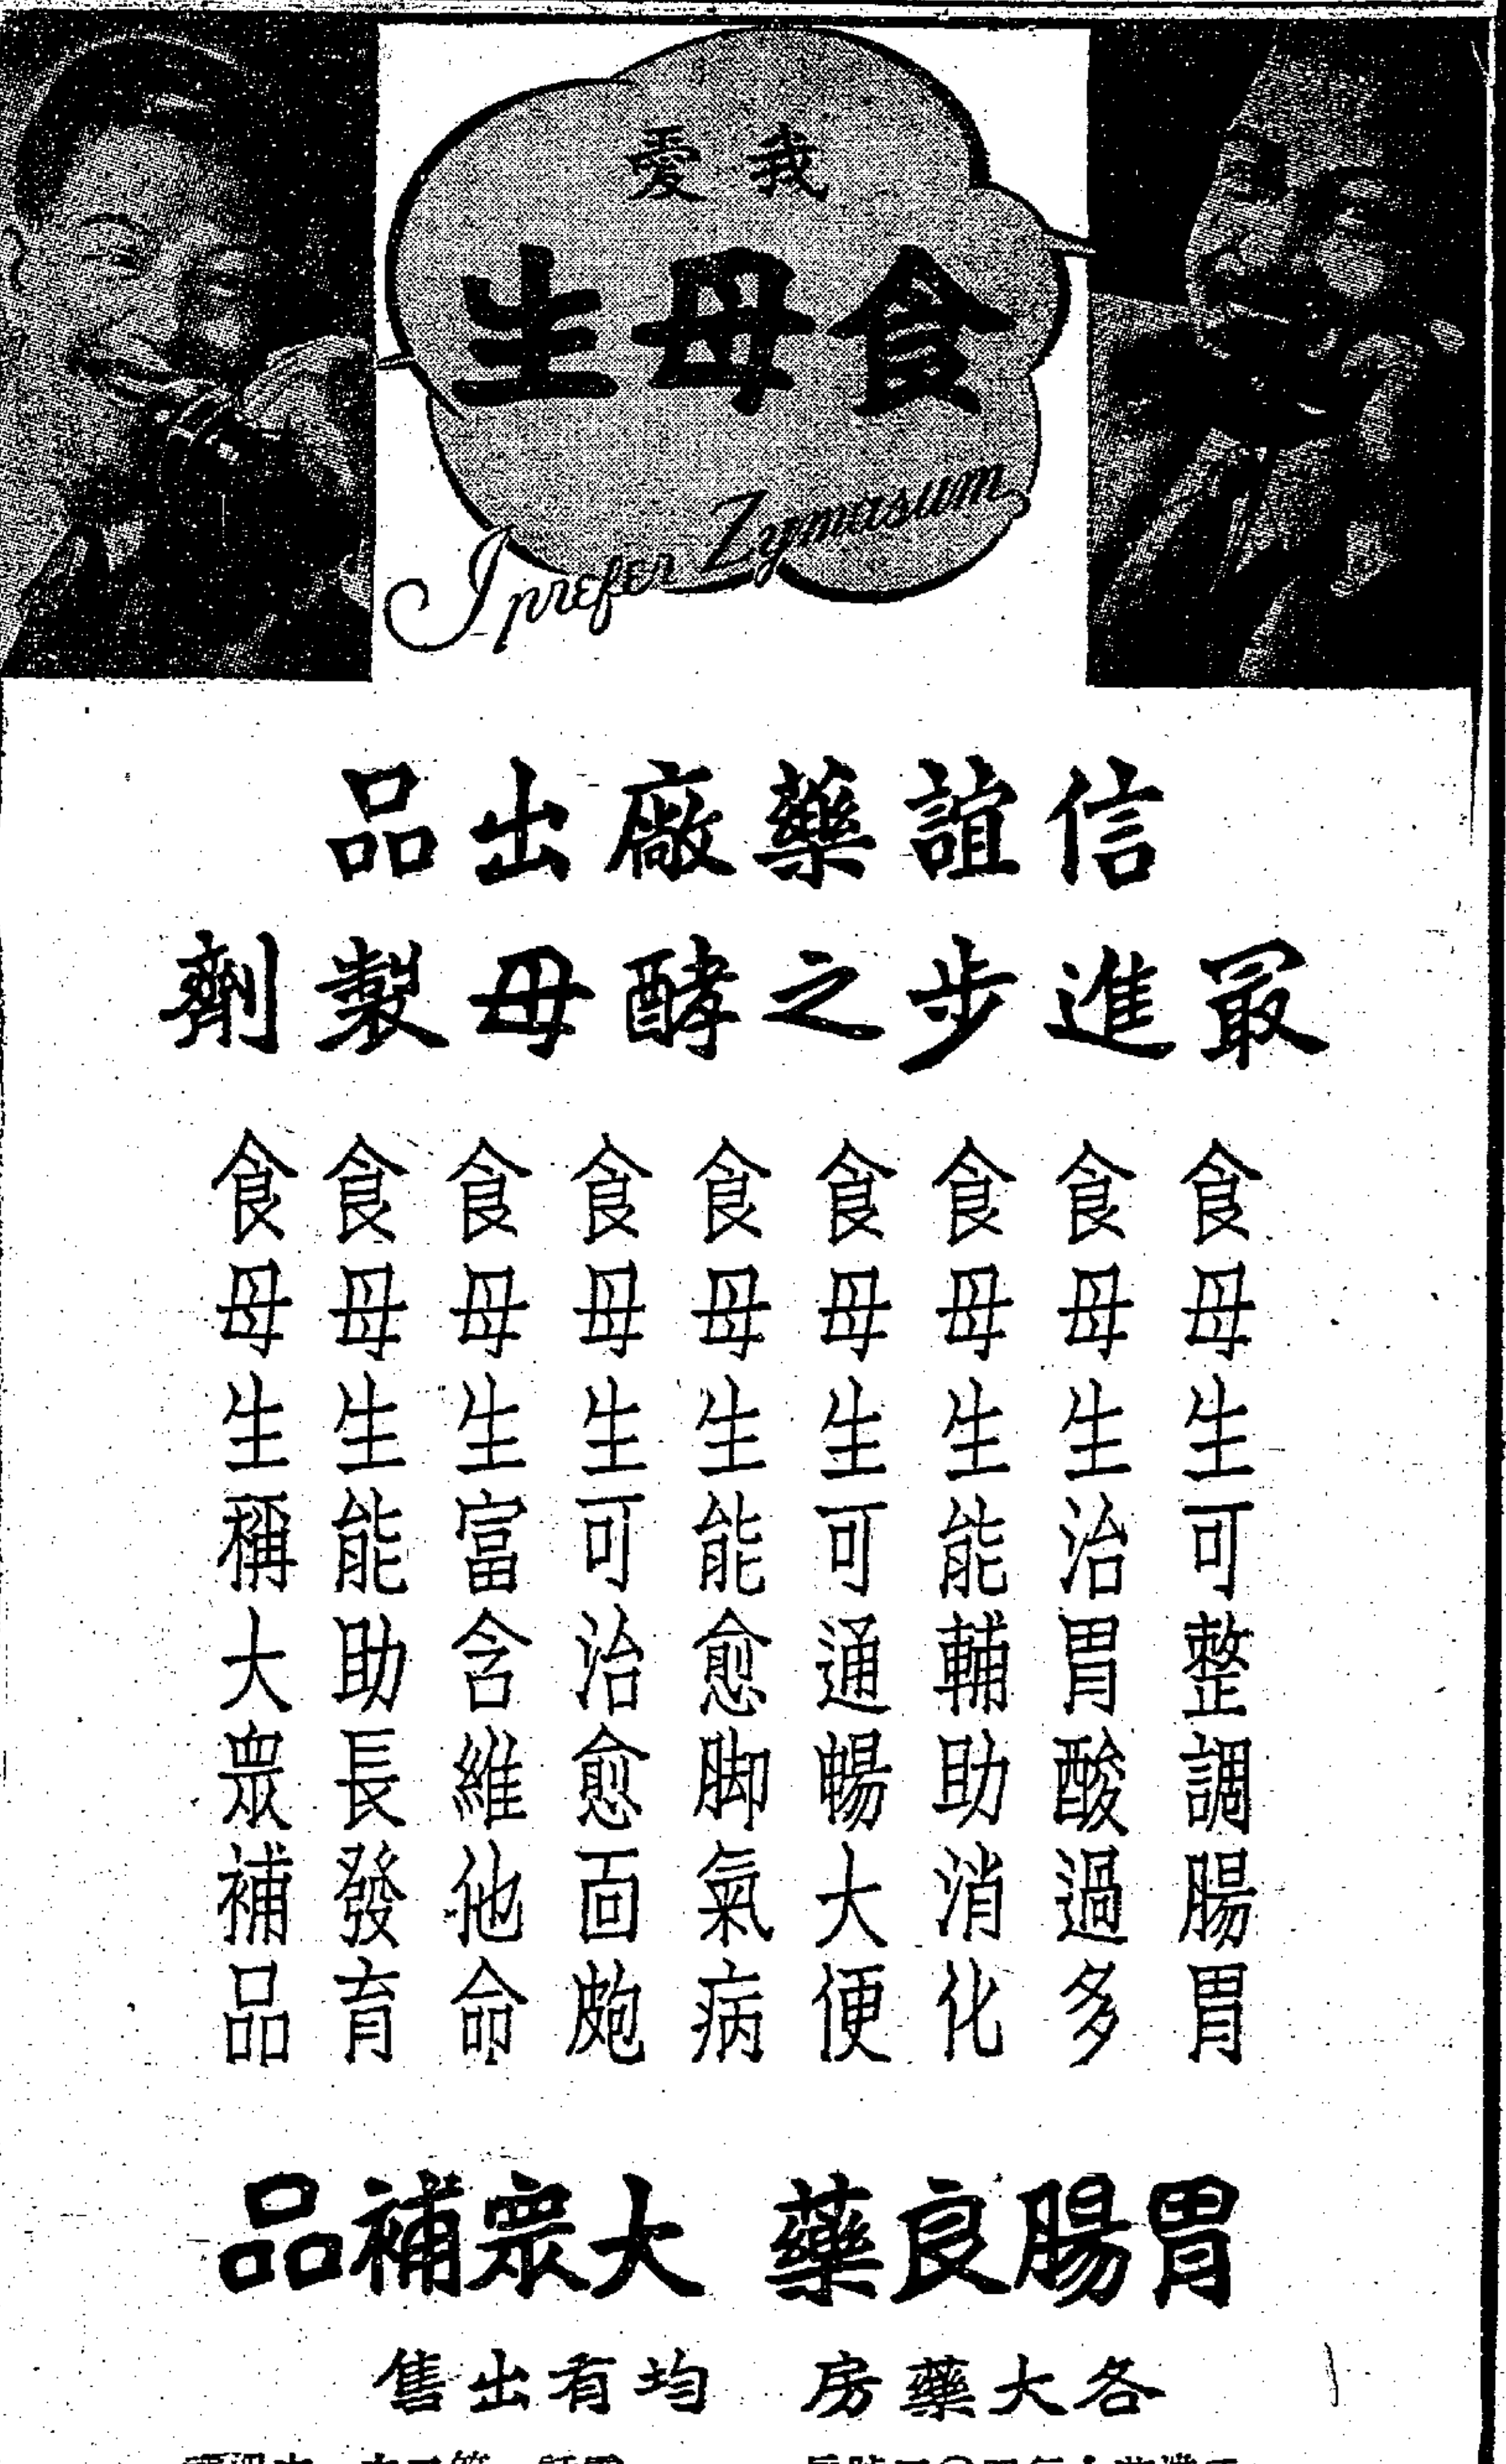 我愛
食母生
I prefer Zymasum
信誼藥廠出品
最進步之酵母製劑
食母生可整調腸胃
食母生治胃酸過多
食母生能輔助消化
食母生可通暢大便
食母生能愈脚氣病
食母生可治愈面皰
食母生富含維他命
食母生能助長發育
食母生稱大眾補品
胃腸良藥 大眾補品
各大藥房 均有出售